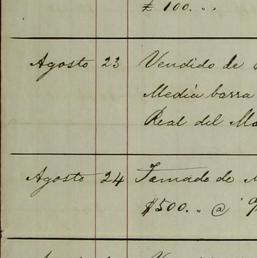 £ 100...
Agosto 23 Vendido de
Media barra
Real del
Agosto 24 Tomado de
$500.. @